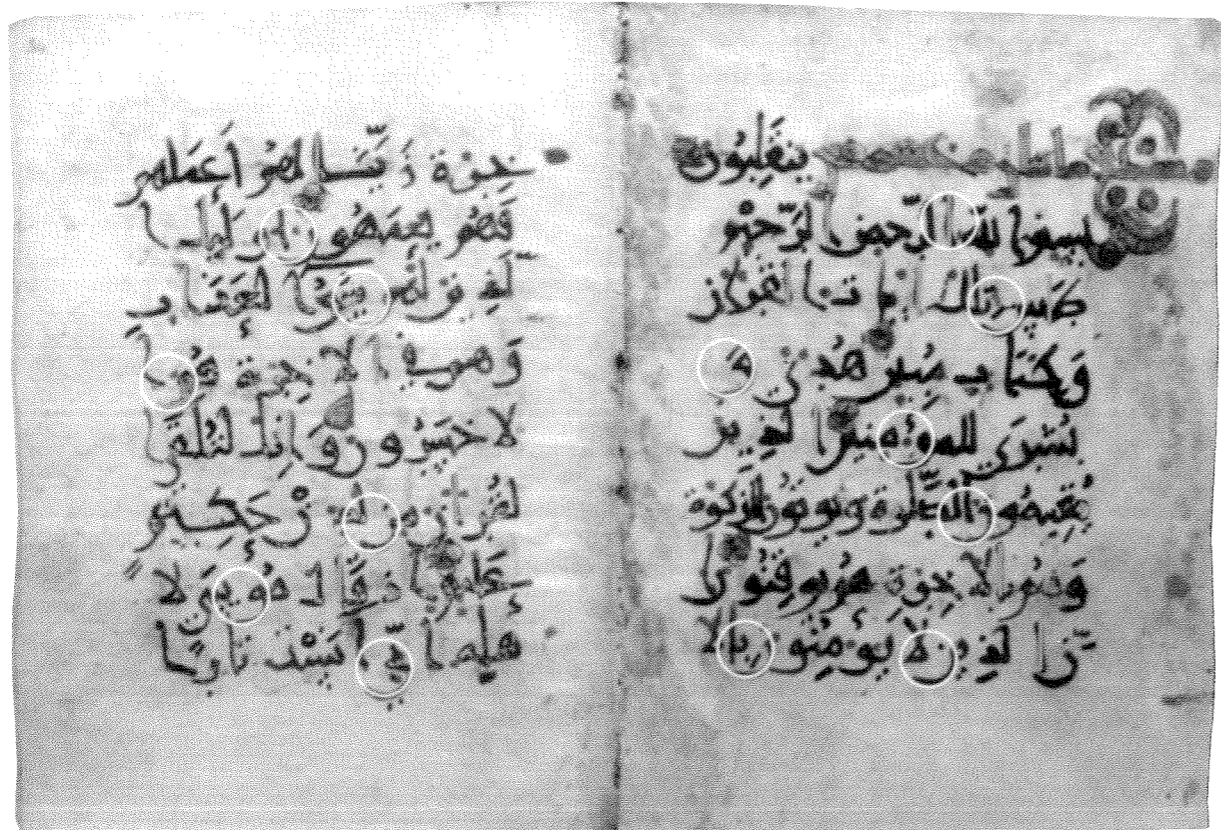 يَنقَلِبُون
بسم الله الرَّحمن الرَّحيم
طس تلك ايات القران
وَكِتَاب مُبِين هُدى وَ
بُشرَى للمؤمنين الذين
يُقيمُون الصَّلوة ويوتون الزكوة
وَهُم بالاخِرَة هُم يُوقِنُون ا
نَّ الذين لا يُؤمِنُون بالا
خِرَة زَيَّنَّا لَهُمُ أَعمَلهم
فَهُم يعمَهُون أُولَيك ا
لَّذِين لَهُم سُوءُ العَذَاب
وَهم في الاخِرَة هُمُ ا
لاخسَرُون وَإِنك لَتُلَقَّى ا
لقُران من لَدُن حَكِيم
عَلِيم اذ قَال مُوسَى لا
هلِه اني أنَستُ نَارًا سا